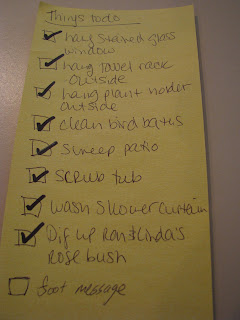 Things to do
hang stained glass
window
hang towel rack
outside
hang plant holder
outside
clean bird baths
sweep patio
scrub tub
wash shower curtain
Dig up Ron & Linda's
Rose bush
foot message